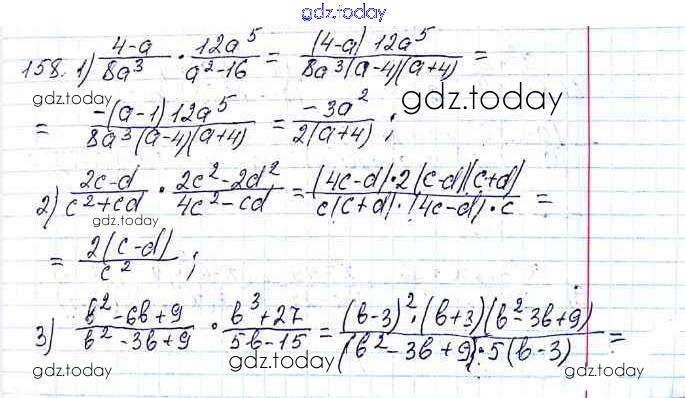 gdz.today
158. 1) (4-a)/(8a³) · (12a⁵)/(a²-16) = ((4-a) 12a⁵)/(8a³(a-4)(a+4)) =
gdz.today
= (-(a-1) 12a⁵)/(8a³(a-4)(a+4)) = (-3a²)/(2(a+4)) ; gdz.today
2) (2c-d)/(c²+cd) · (2c²-2d²)/(4c²-cd) = ((4c-d)·2(c-d)(c+d))/(c(c+d)·(4c-d)·c) =
gdz.today
= (2(c-d))/(c²) ;
3) (b²-6b+9)/(b²-3b+9) · (b³+27)/(5b-15) = ((b-3)²·(b+3)(b²-3b+9))/((b²-3b+9)·5(b-3)) =
gdz.today gdz.today gdz.today